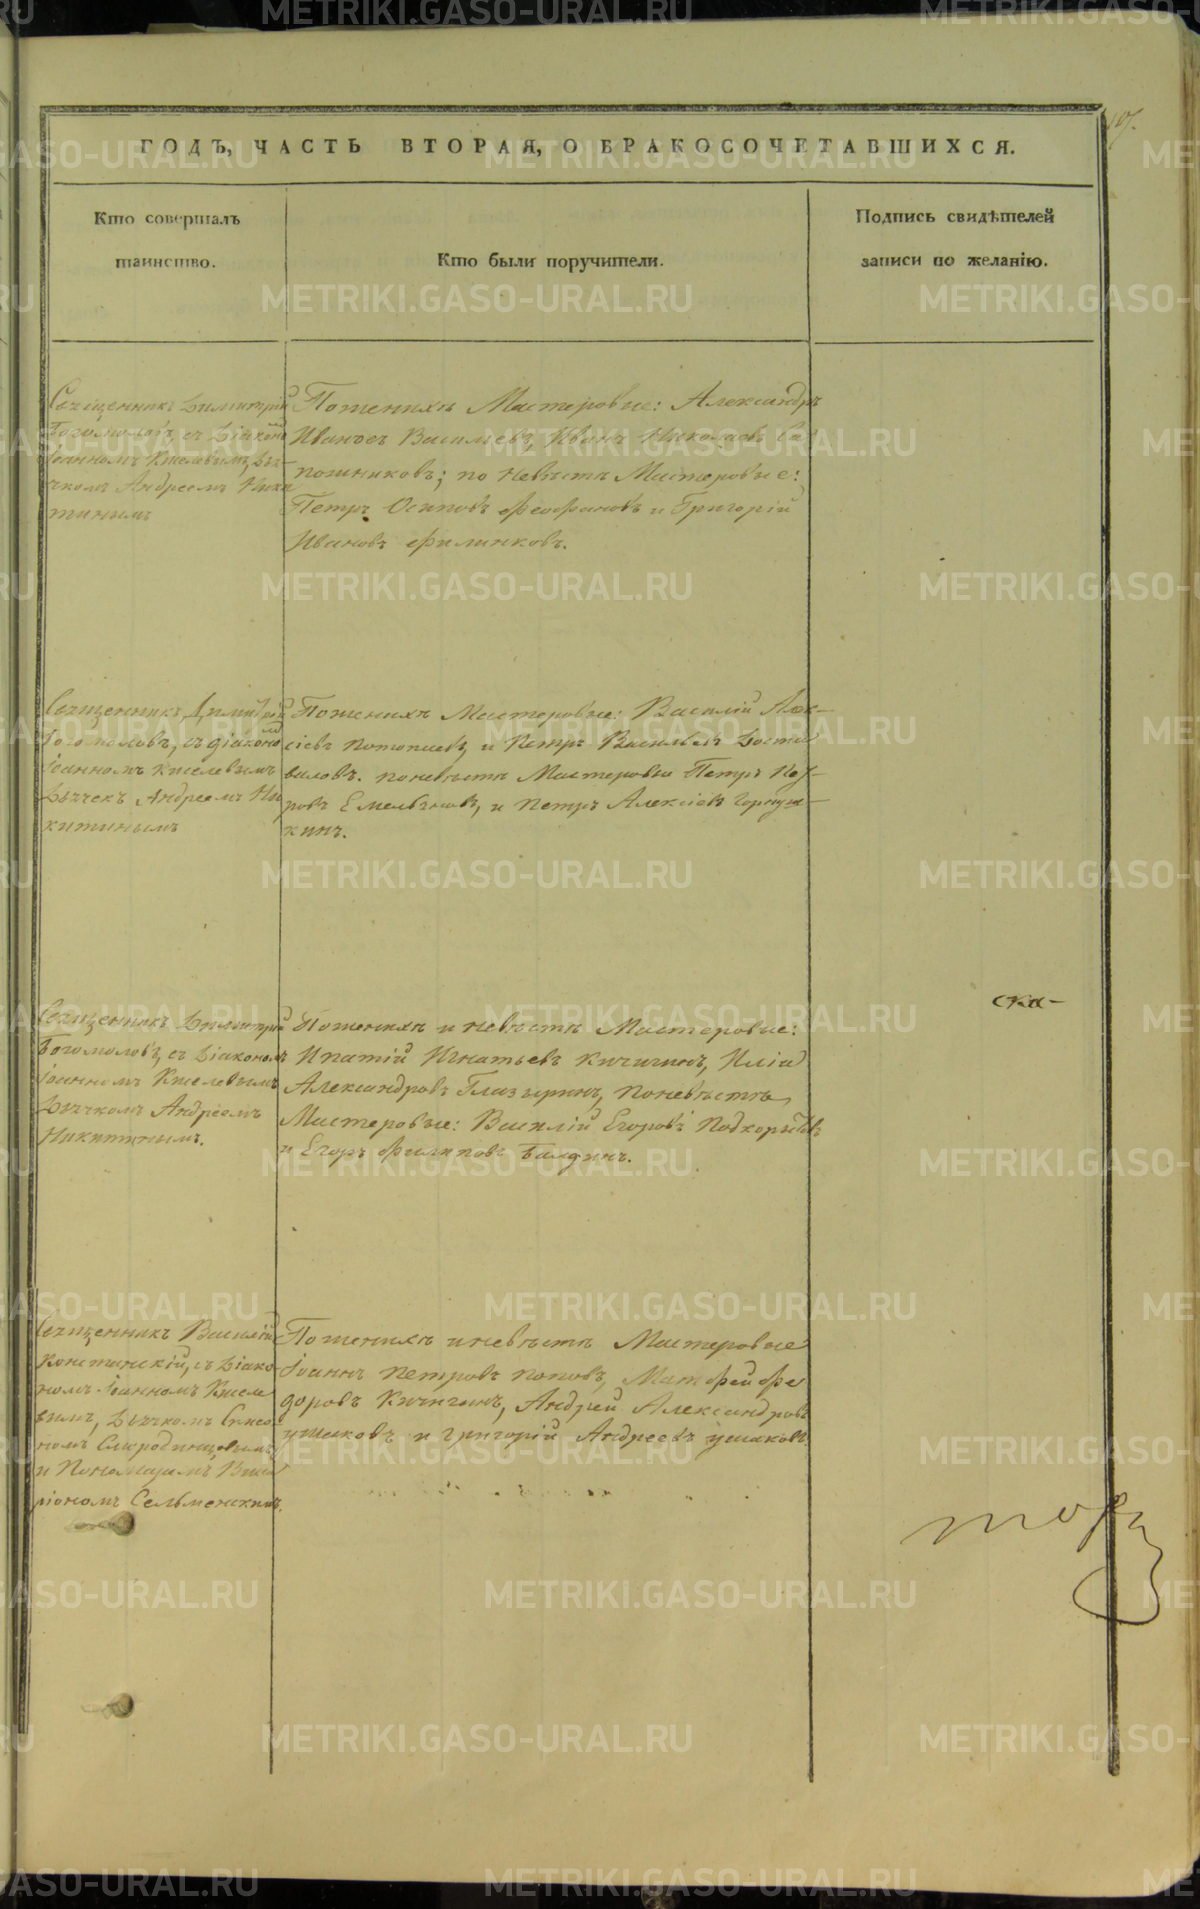 107.
ГОДЪ, ЧАСТЬ ВТОРАЯ, О БРАКОСОЧЕТАВШИХСЯ.
Кто совершалъ
таинство.
Кто были поручители.
Подпись свидѣтелей
записи по желанію.
Священникъ Димитрій
Богомоловъ, съ Діакономъ
Іоанномъ Киселевымъ, Дья-
чкомъ Андреемъ Ники
тинымъ
По женихѣ Мастеровые: Александръ
Ивановъ Васильевъ, Иванъ Николаевъ Са
пожниковъ; по невѣстѣ Мастеровые:
Петръ Осиповъ Феофановъ и Григорій
Ивановъ Филинковъ.
Священникъ Димитрій
Богомоловъ, съ діакономъ
Іоанномъ Киселевымъ
Дьячекъ Андреемъ Ни
китинымъ
По женихѣ Мастеровые: Василій Алек-
сіевъ Потопаевъ, и Петръ Васильевъ
валовъ. по невѣстѣ Мастеровые Петръ
ровъ Емельяновъ, и Петръ Алексіевъ Горнуш-
кинъ.
ска-
Священникъ Димитрій
Богомоловъ, съ Діакономъ
Іоанномъ Киселевымъ
Дьячкомъ Андреемъ
Никитинымъ.
По женихѣ и невѣстѣ Мастеровые:
Ипатій Игнатьевъ Кичигинъ, Илія
Александровъ Глазыринъ, по невѣстѣ
Мастеровые: Василій Егоровъ Подкорытовъ
и Егоръ Филиповъ Балдинъ.
Священникъ Василій
Константскій, съ Діако-
номъ Іоанномъ Кисел
вымъ, Дьячкомъ Симео
номъ Смородинцовымъ,
и Пономаремъ
ріономъ Сельменскимъ.
По женихѣ и невѣстѣ Мастеровые
Іоаннъ Петровъ Поповъ, Матфей Фе
доровъ Кичигинъ, Андрей Александровъ
Ушаковъ и Григорій Андреевъ Ушаковъ
торъ
METRIKI.GASO-URAL.RU